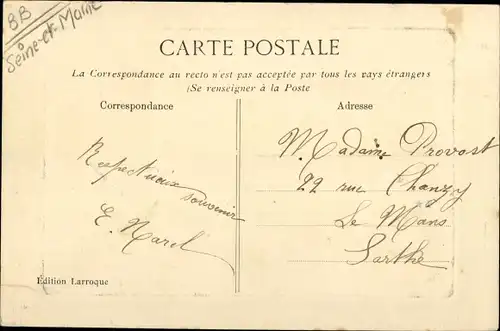 BB
Seine-et-Marne
CARTE POSTALE
La Correspondance au recto n'est pas acceptée par tous les pays étrangers
(Se renseigner à la Poste
Correspondance
Adresse
Respectueux
souvenir
E. Marel
Madame Provost
22 rue Chanzy
Le Mans
Sarthe
Édition Larroque